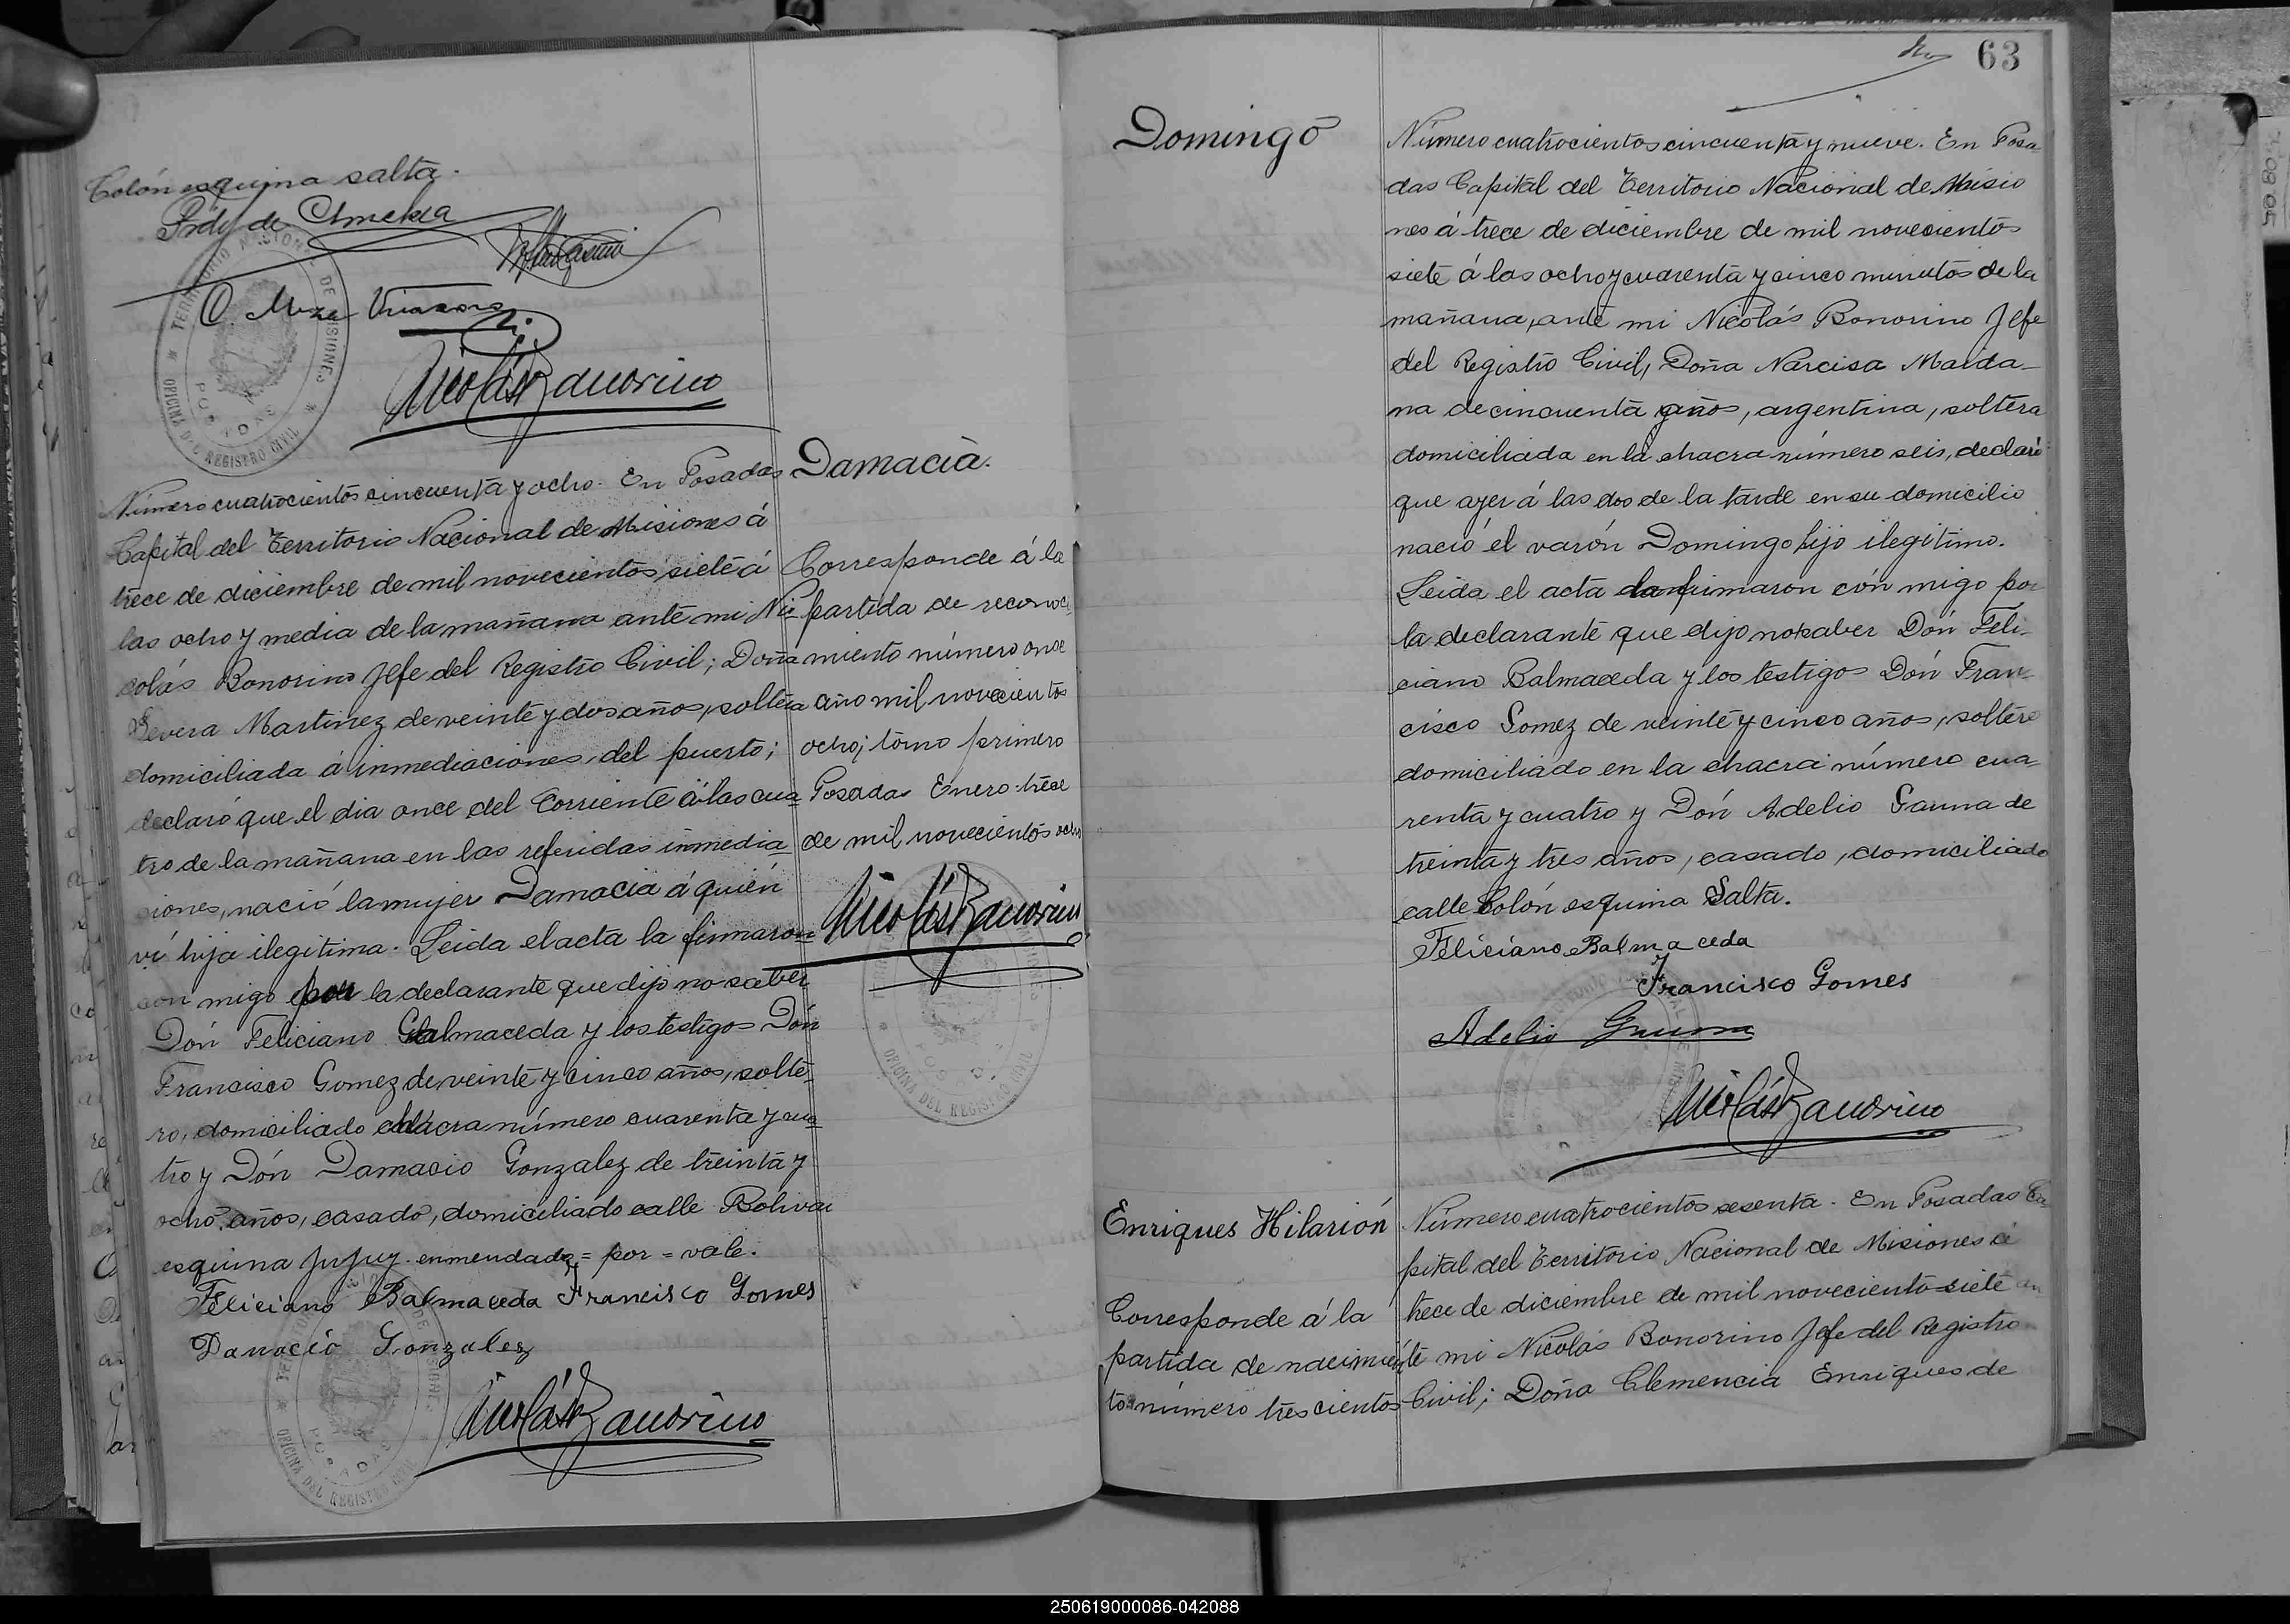 Colón esquina salta.
Frdy de Almeida
Nicolás Bonorino
TERRITORIO NACIONAL DE MISIONES
POSADAS
OFICINA DEL REGISTRO CIVIL
Número cuatrocientos cincuenta y ocho. En Posadas
Capital del Territorio Nacional de Misiones á
trece de diciembre de mil novecientos siete á
las ocho y media de la mañana ante mi Ni
colás Bonorino Jefe del Registro Civil; Doña
Severa Martinez de veinte y dos años, soltera
domiciliada á inmediaciones del puerto;
declaró que el dia once del Corriente á las cua
tro de la mañana en las referidas inmedia
ciones, nació la mujer Damacia á quién
ví hija ilegitima. Leida el acta la firmaron
con migo por la declarante que dijo no saber
Dón Feliciano Balmaceda y los testigos Dón
Francisco Gomez de veinte y cinco años, solte-
ro, domiciliado chacra número cuarenta y cua
tro y Dón Damacio Gonzalez de treinta y
ocho años, casado, domiciliado calle Bolivar
esquina Jujuy. enmendado = por = vale.
Feliciano Balmaceda Francisco Gomes
Damacio Gonzalez
Nicolás Bonorino
Damacia.
Corresponde á la
partida de reconoci
miento número once
año mil novecientos
ocho; tomo primero
Posadas Enero trece
de mil novecientos ocho
Nicolás Bonorino
63
Domingo
Número cuatrocientos cincuenta y nueve. En Posa
das Capital del Territorio Nacional de Misio
nes á trece de diciembre de mil novecientos
siete á las ocho y cuarenta y cinco minutos de la
mañana, ante mi Nicolás Bonorino Jefe
del Registro Civil, Doña Narcisa Maida-
na de cincuenta años, argentina, soltera
domiciliada en la chacra número seis, declaró
que ayer á las dos de la tarde en su domicilio
nació el varón Domingo hijo ilegitimo.
Leida el acta la firmaron cón migo por
la declarante que dijo no saber Dón Feli-
ciano Balmaceda y los testigos Dón Fran-
cisco Gomez de veinte y cinco años, soltero
domiciliado en la chacra número cua-
renta y cuatro y Dón Adelio Gauna de
treinta y tres años, casado, domiciliado
calle Colón esquina Salta.
Feliciano Balmaceda
Francisco Gomes
Adelio Gauna
Nicolás Bonorino
Enriques Hilarión
Corresponde á la
partida de nacimien
to número trescientos
Número cuatrocientos sesenta. En Posadas Ca
pital del Territorio Nacional de Misiones á
trece de diciembre de mil novecientos siete an
te mi Nicolás Bonorino Jefe del Registro
Civil; Doña Clemencia Enriques de
250619000086-042088